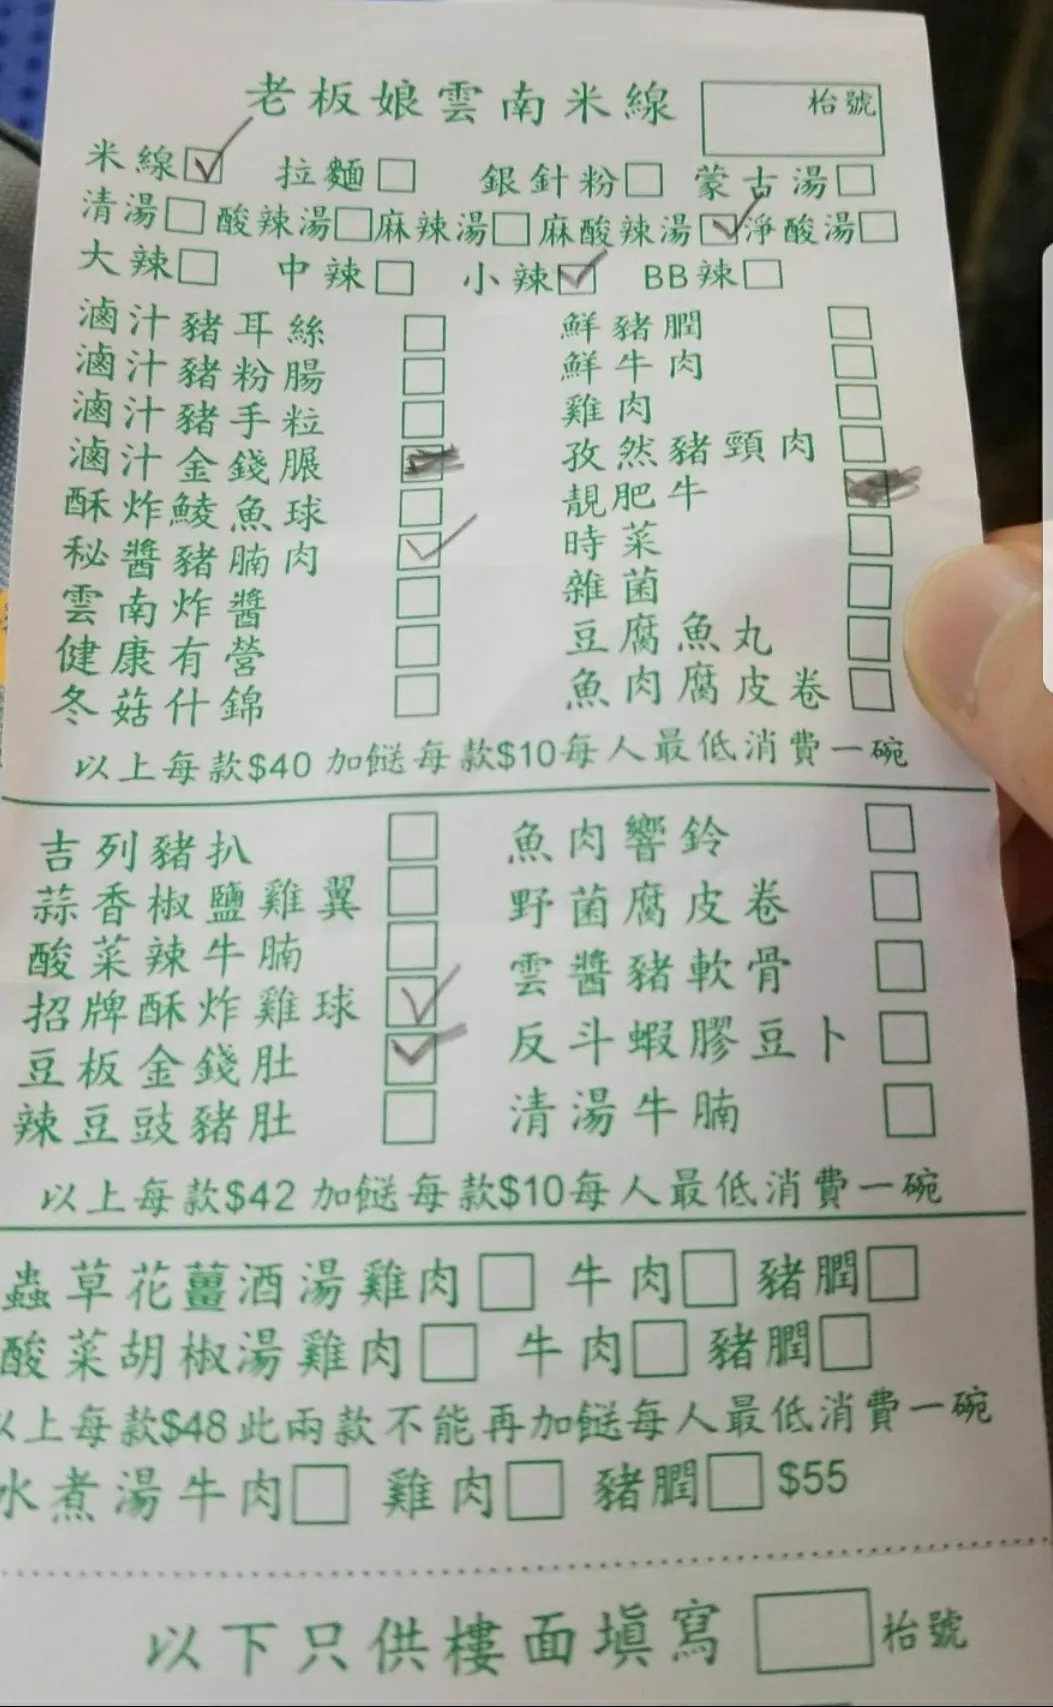 老板娘雲南米線 枱號
米線 拉麵 銀針粉 蒙古湯
清湯 酸辣湯 麻辣湯 麻酸辣湯 淨酸湯
大辣 中辣 小辣 BB辣
滷汁豬耳絲 鮮豬膶
滷汁豬粉腸 鮮牛肉
滷汁豬手粒 雞肉
滷汁金錢𦟌 孜然豬頸肉
酥炸鯪魚球 靚肥牛
秘醬豬腩肉 時菜
雲南炸醬 雜菌
健康有營 豆腐魚丸
冬菇什錦 魚肉腐皮卷
以上每款$40 加餸每款$10每人最低消費一碗
吉列豬扒 魚肉響鈴
蒜香椒鹽雞翼 野菌腐皮卷
酸菜辣牛腩 雲醬豬軟骨
招牌酥炸雞球 反斗蝦膠豆卜
豆板金錢肚 清湯牛腩
辣豆豉豬肚
以上每款$42 加餸每款$10每人最低消費一碗
蟲草花薑酒湯雞肉 牛肉 豬膶
酸菜胡椒湯雞肉 牛肉 豬膶
以上每款$48此兩款不能再加餸每人最低消費一碗
水煮湯牛肉 雞肉 豬膶 $55
以下只供樓面填寫 枱號